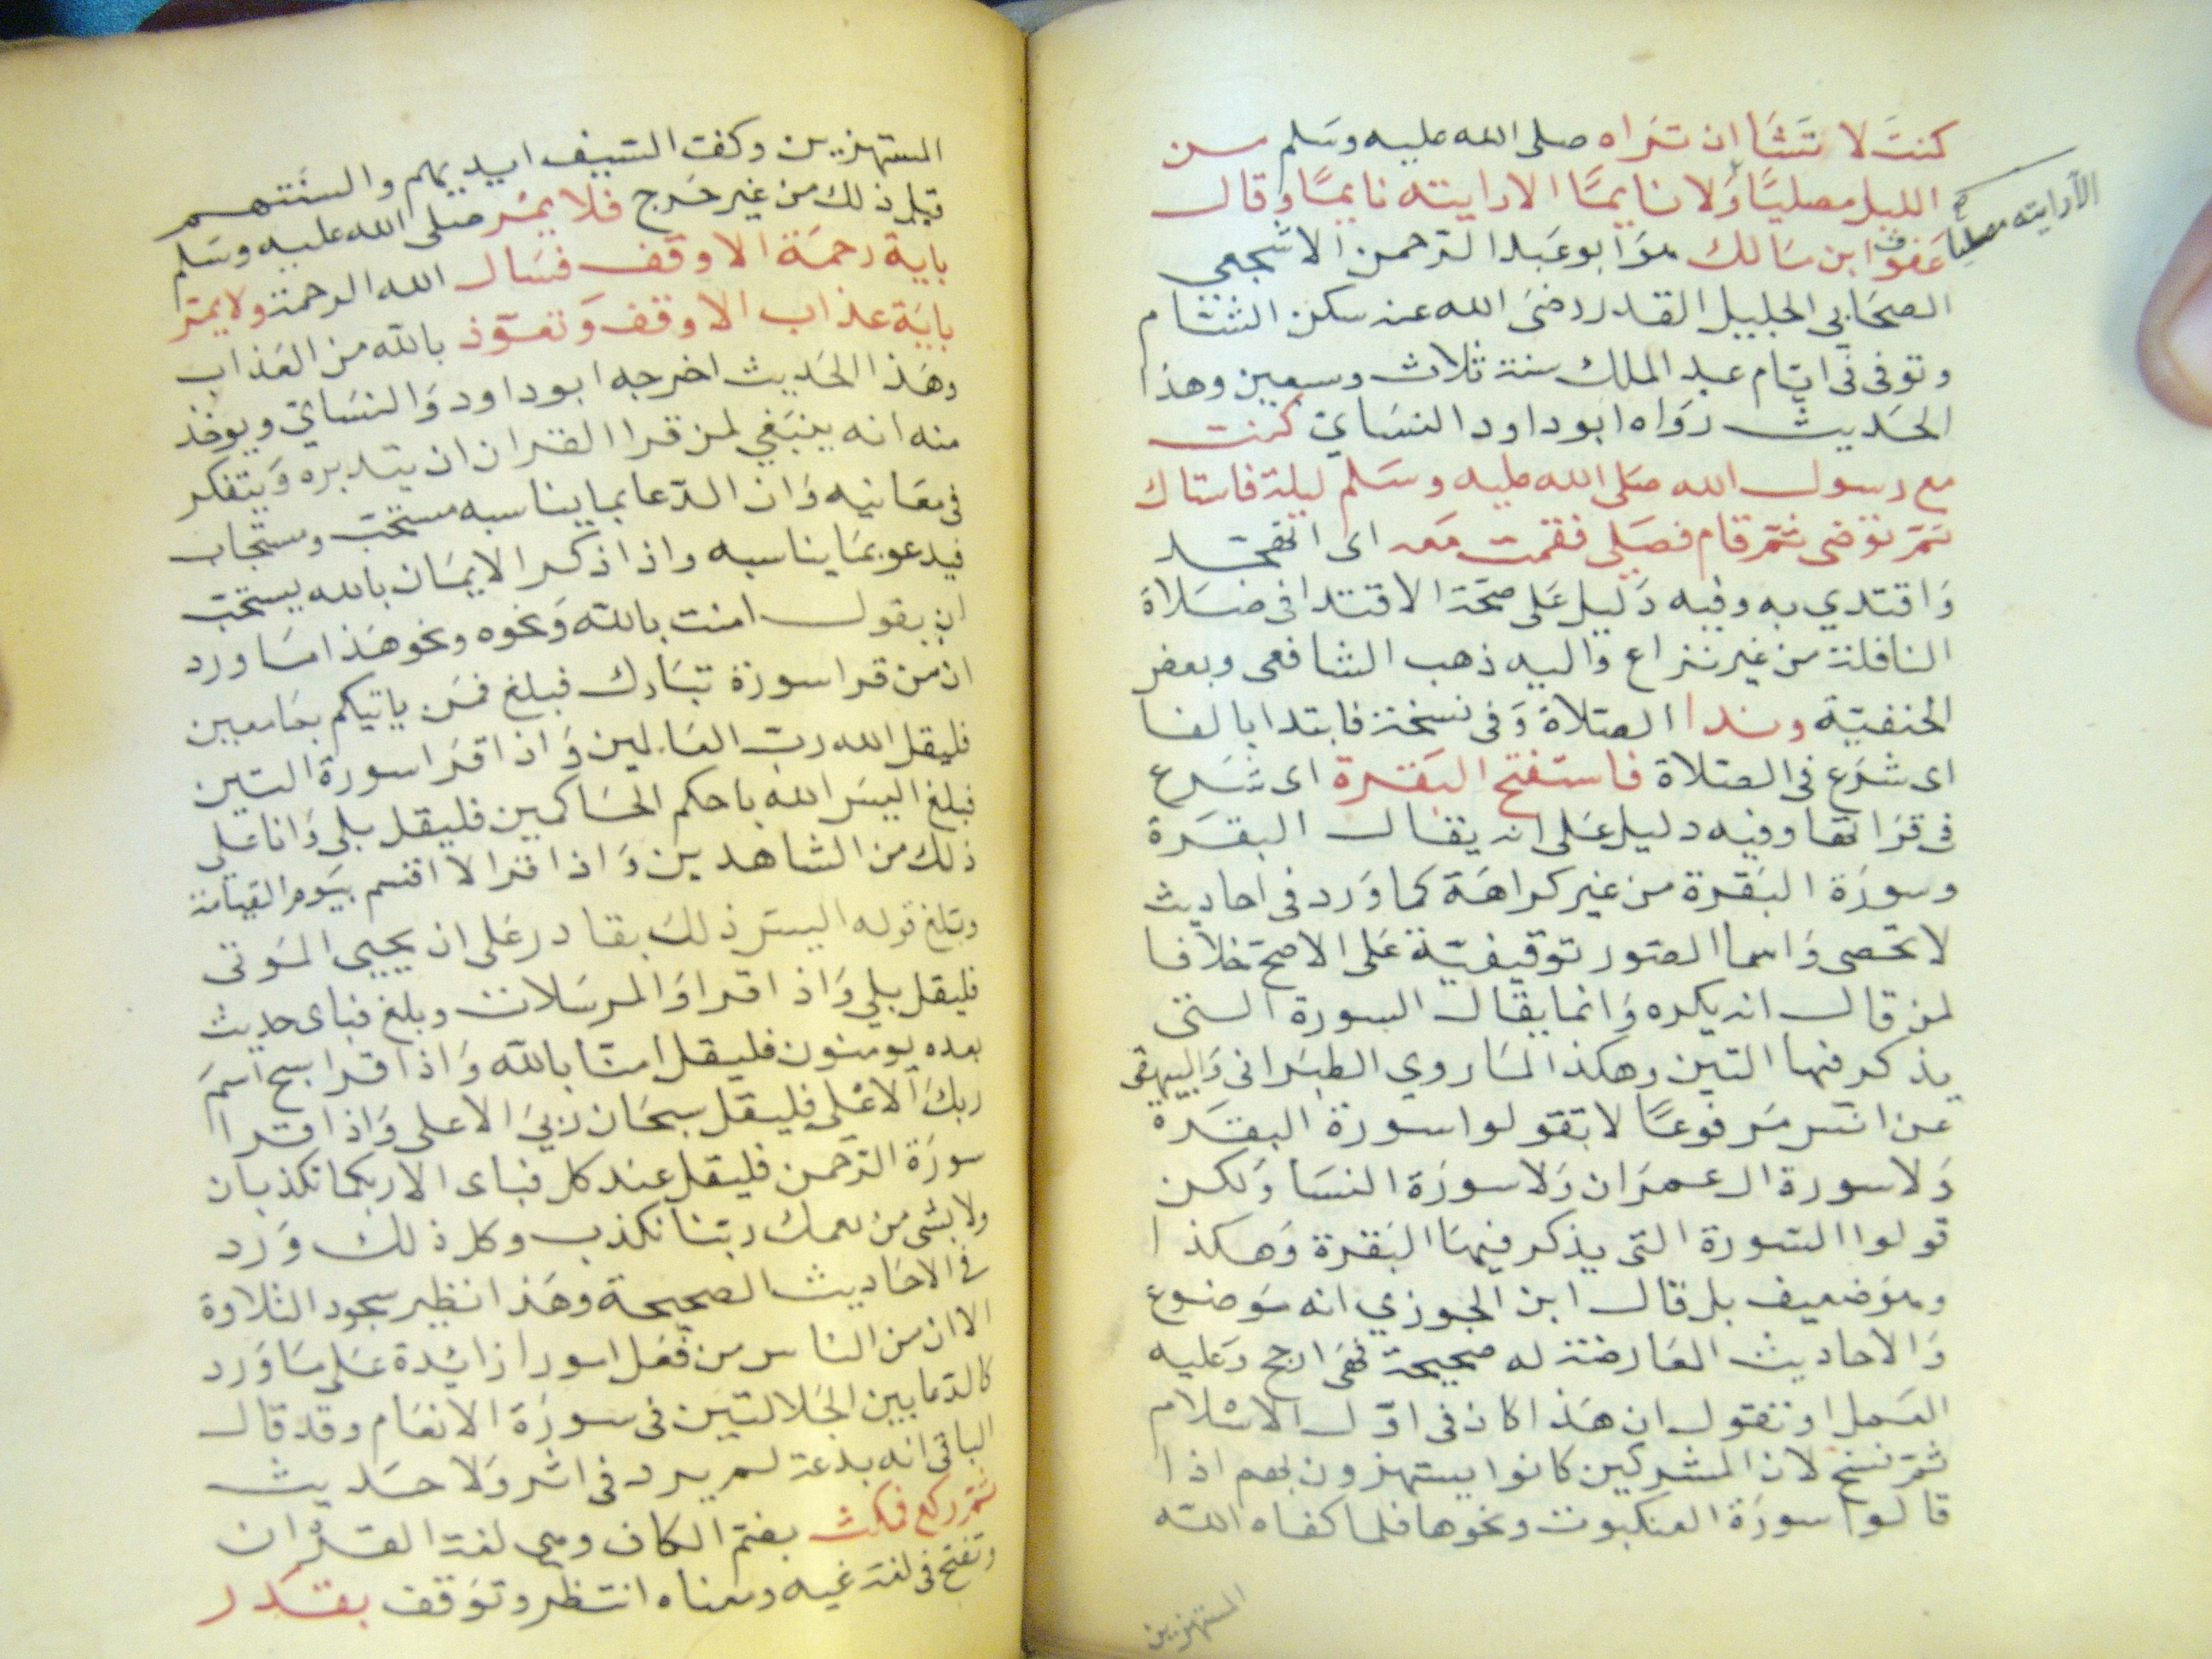 كنتَ لا تشَا ان تراه صلى الله عليه وسَلم من
الليل مصليًا وَلا نايمًا الا رايته نايمًا وقال
الا رايته مصليا صح
عَفوف ابن مَالك هوَ ابو عَبد الرحمن الاشجعي
الصحَابي الجليل القدر رضىَ الله عنه سكن الشام
وتوفى فى ايام عبد الملك سنة ثلاث وسبعين وهذا
الحَديث روَاه ابو داود النسَاي كنت
مع رسول الله صَلى الله عليه وسَلم ليلة فاستاك
ثمّ توضى ثمّ قام فصَلى فقمت مَعه اى اتهجد
وَاقتدي به وفيه دَليل عَلى صحَة الاقتدا فى صَلاة
النافلة من غير نزاع وَاليه ذهب الشافعى وبعض
الحنفيّة وبدا الصّلاة وَفى نسخة فابتدا بالفا
اى شرَع فى الصّلاة فاستفتح البَقرة اى شرَع
فى قرَاتها وفيه دليل عَلى انه يقال البقرَة
وسورَة البَقرة من غير كراهَة كما وَرد فى احاديث
لا تحصى وَاسما الصّور توقيفيّة عَلى الاصحّ خلافا
لمن قال انه يكره وَانما يقال السورة التى
يذكر فيها التين وهكذا لمَا روي الطبَرانى وَالبيهقى
عن انس مَرفوعًا لا تقولوا سورة البقرَة
وَلا سورة ال عمرَان وَلا سورَة النسَا وَلكن
قولوا السّورة التى يذكر فيهَا البَقرة وَهكذا
وهوَ ضعيف بل قال ابن الجوزي انه مَوضوع
وَالاحاديث المعَارضة له صحيحة فهىَ ارجح وَعليه
العمل او نقول ان هَذا كان فى اوّل الاسْلام
ثمّ نسخ لان المشركين كانوا يستهزون بهم اذا
قالوا سورَة العنكبوت ونحوها فلما كفاه اللّه
المستهزين
المستهزين وكفت السّيف ايديهم والسنَتهم
قيل ذلك من غير حَرج فلا يمُر صلى الله عليه وسَلم
باية رحمَة الا وقف فسَال الله الرحمة ولا يمرّ
بايَة عذاب الا وقف وَتعوّذ باللّه من العَذاب
وهَذا الحَديث اخرجه ابو داود وَالنسَاي ويوخذ
منه انه ينبَغي لمن قرا القران ان يتدبره وَيتفكر
فى معَانيه وَان الدّعا بما يناسبه مستحَبّ ومستجاب
فيدعو بمَا يناسبه واذا ذكر الايمَان بالله يستحَبّ
ان يقول امنت باللّه وَنحوه ونحو هَذا مَا ورد
ان من قرا سورَة تبَارك فبلغ فمَن ياتيكم بمَا معين
فليقل الله ربّ العَالمين وَاذا قرَا سورة التين
فبلغ اليسَ الله باحكم الحَاكمين فليقل بلى وَانا على
ذلك من الشاهدين وَاذا قرا لا اقسم بيَوم القيامَة
وبَلغ قوله اليسَ ذلكَ بقادر عَلى ان يحيى الموَتى
فليقل بلي وَاذا قرا وَالمرسَلات وبلغ فباى حديث
بعده يومنون فليقل امنّا باللّه وَاذا قرا سبح اسمَ
ربكَ الاعْلى فليقل سبحَان ربيَ الاعلى وَاذا قرا
سورَة الرّحمن فليقل عند كل فباى الا ربكما تكذبان
ولا بشى من نعمك ربّنا نكذب وكل ذلك وَرد
فى الاحَاديث الصحيحة وهَذا نظير سجود التلاوة
الا ان من الناس من فعَل امورا زائدة عَلى مَا وَرد
كالدّعا بين الجَلالتين فى سورَة الانعَام وقد قال
الباقى انه بدعة لم يرد فى اثر وَلا حَديث
ثمّ ركع فمكث بضمّ الكاف وهى لغة القرْان
وتفتح فى لغة غيره ومعناه انتظر وتوَقف بقدَر